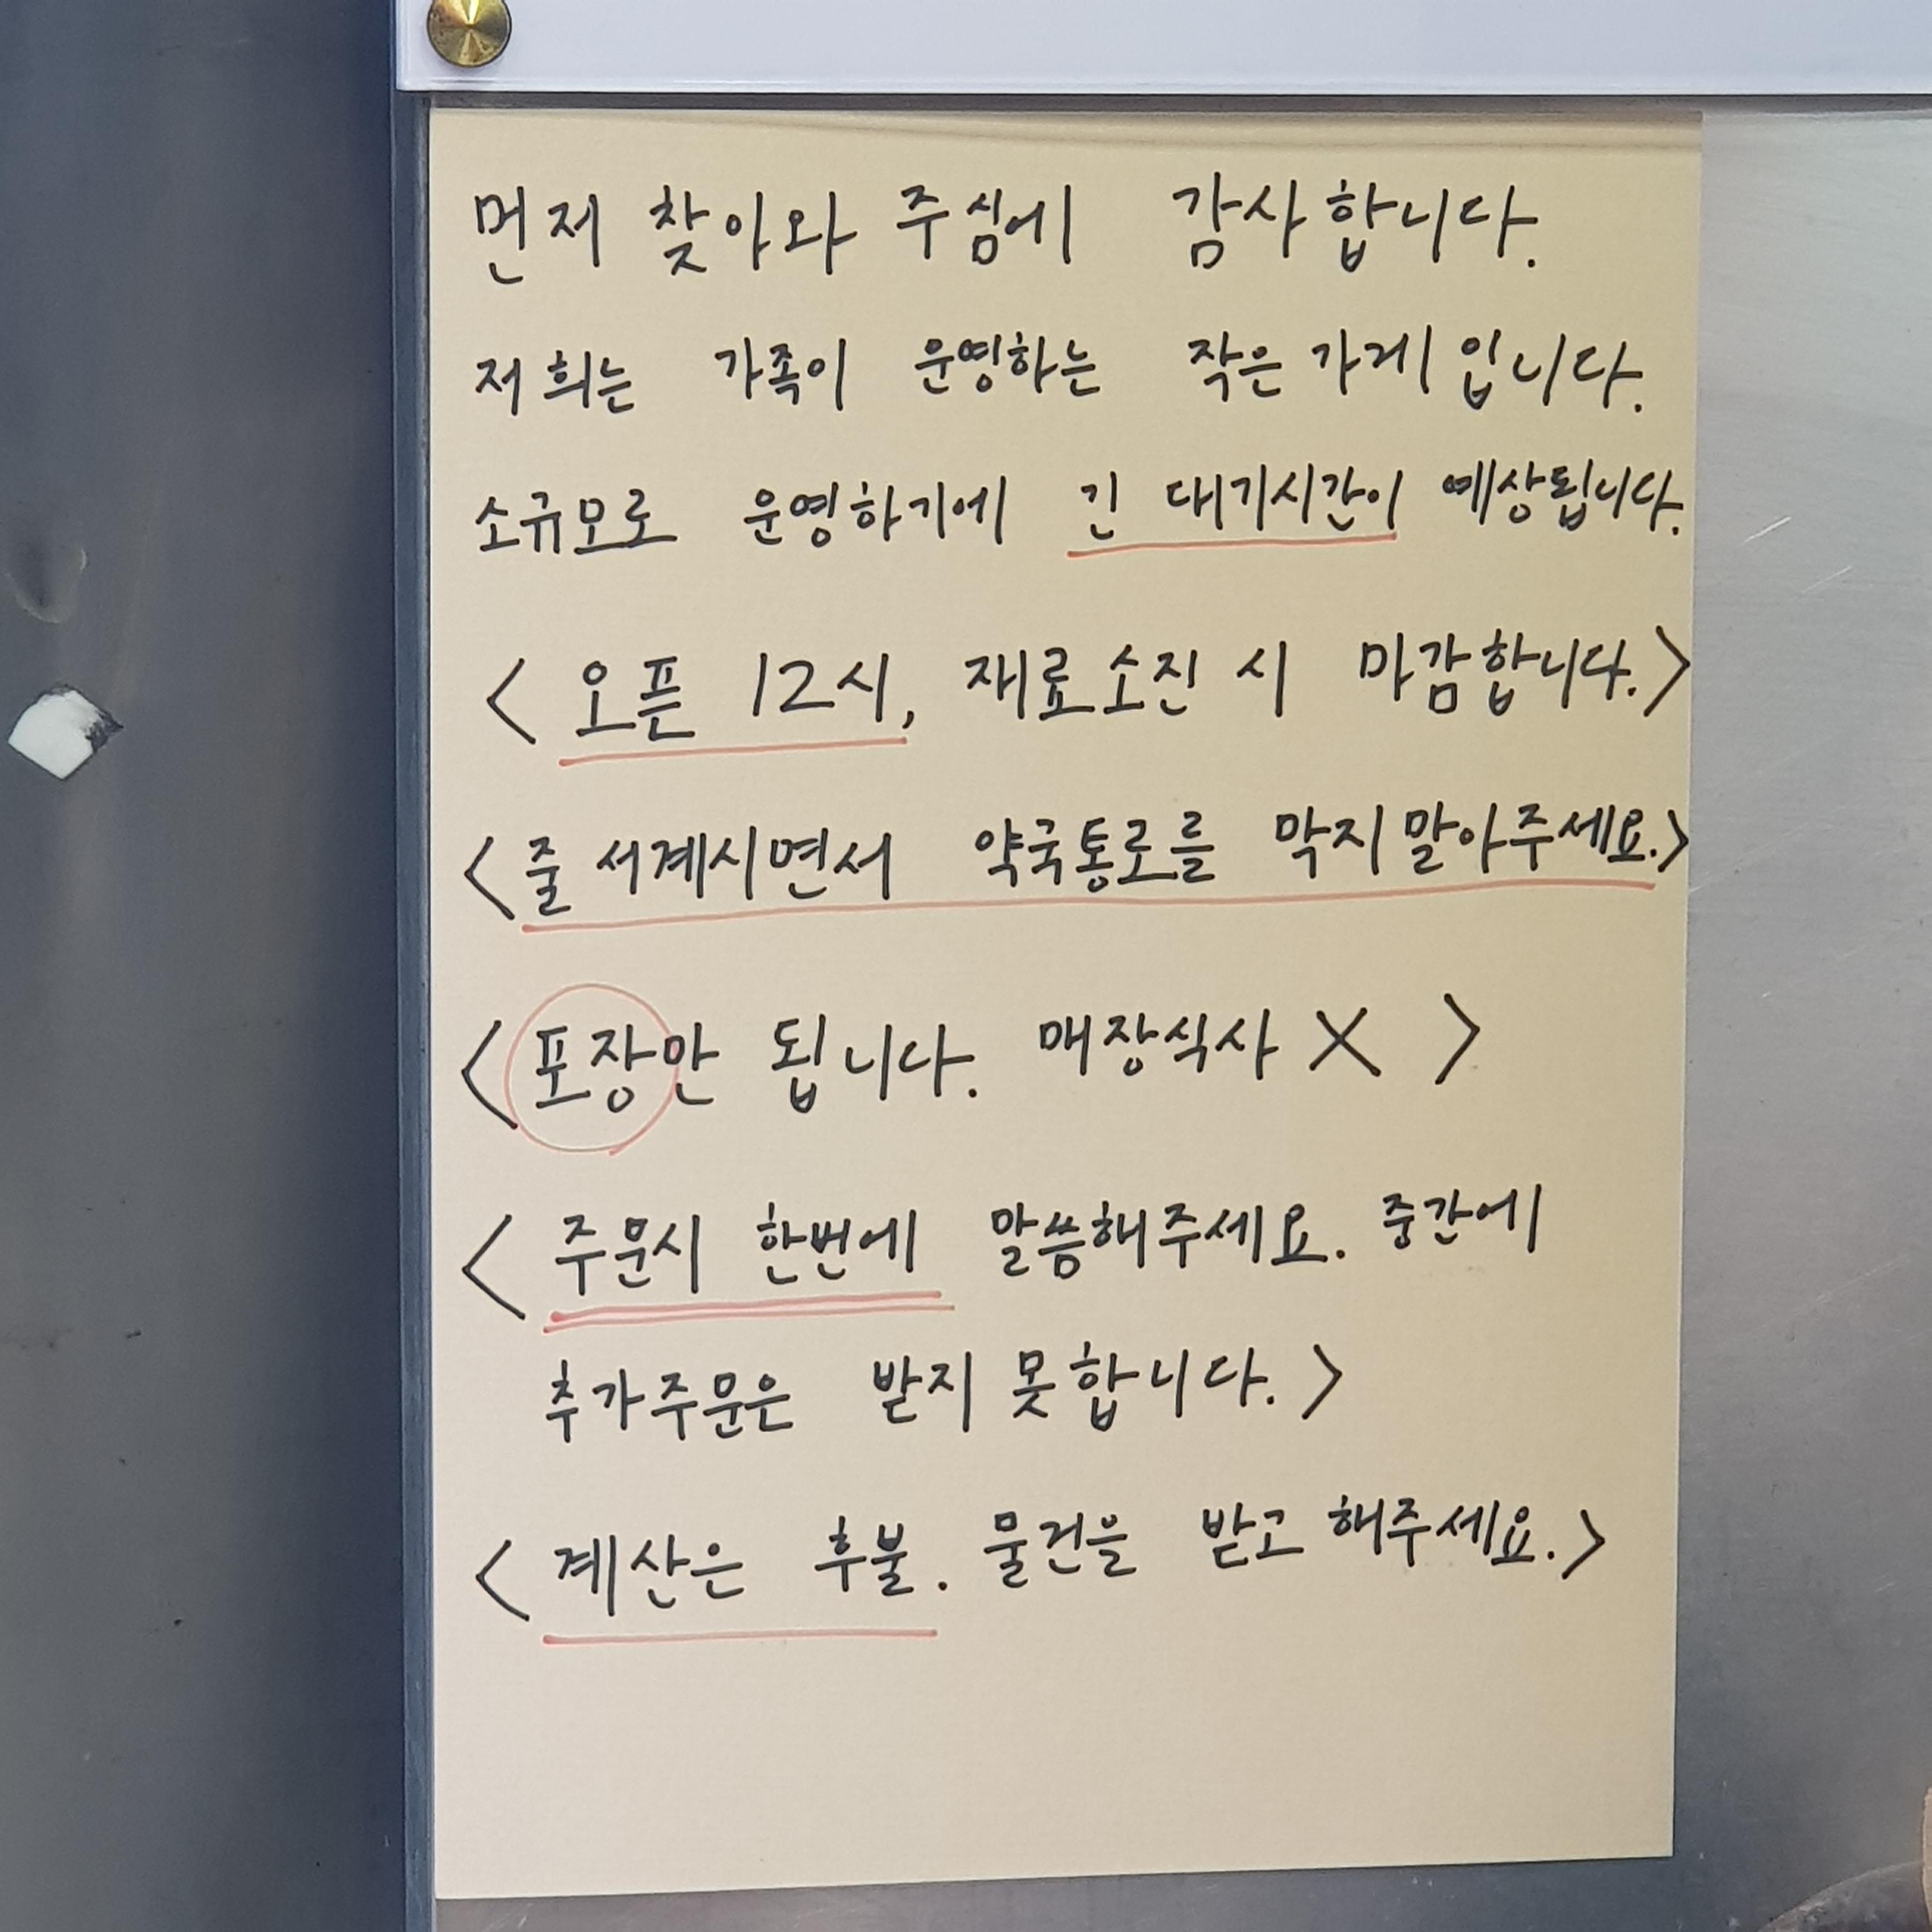 먼저 찾아와 주심에 감사합니다.
저희는 가족이 운영하는 작은 가게입니다.
소규모로 운영하기에 긴 대기시간이 예상됩니다.
< 오픈 12시, 재료소진 시 마감합니다.>
<줄 서계시면서 약국통로를 막지말아주세요.>
<포장만 됩니다. 매장식사 X >
< 주문시 한번에 말씀해주세요. 중간에
추가주문은 받지 못합니다.>
< 계산은 후불. 물건을 받고 해주세요.>